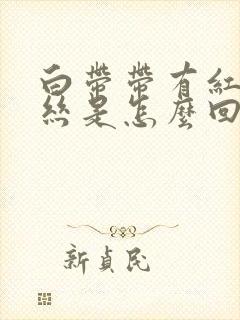 白带带有紅
絲是怎麼回
新貞民